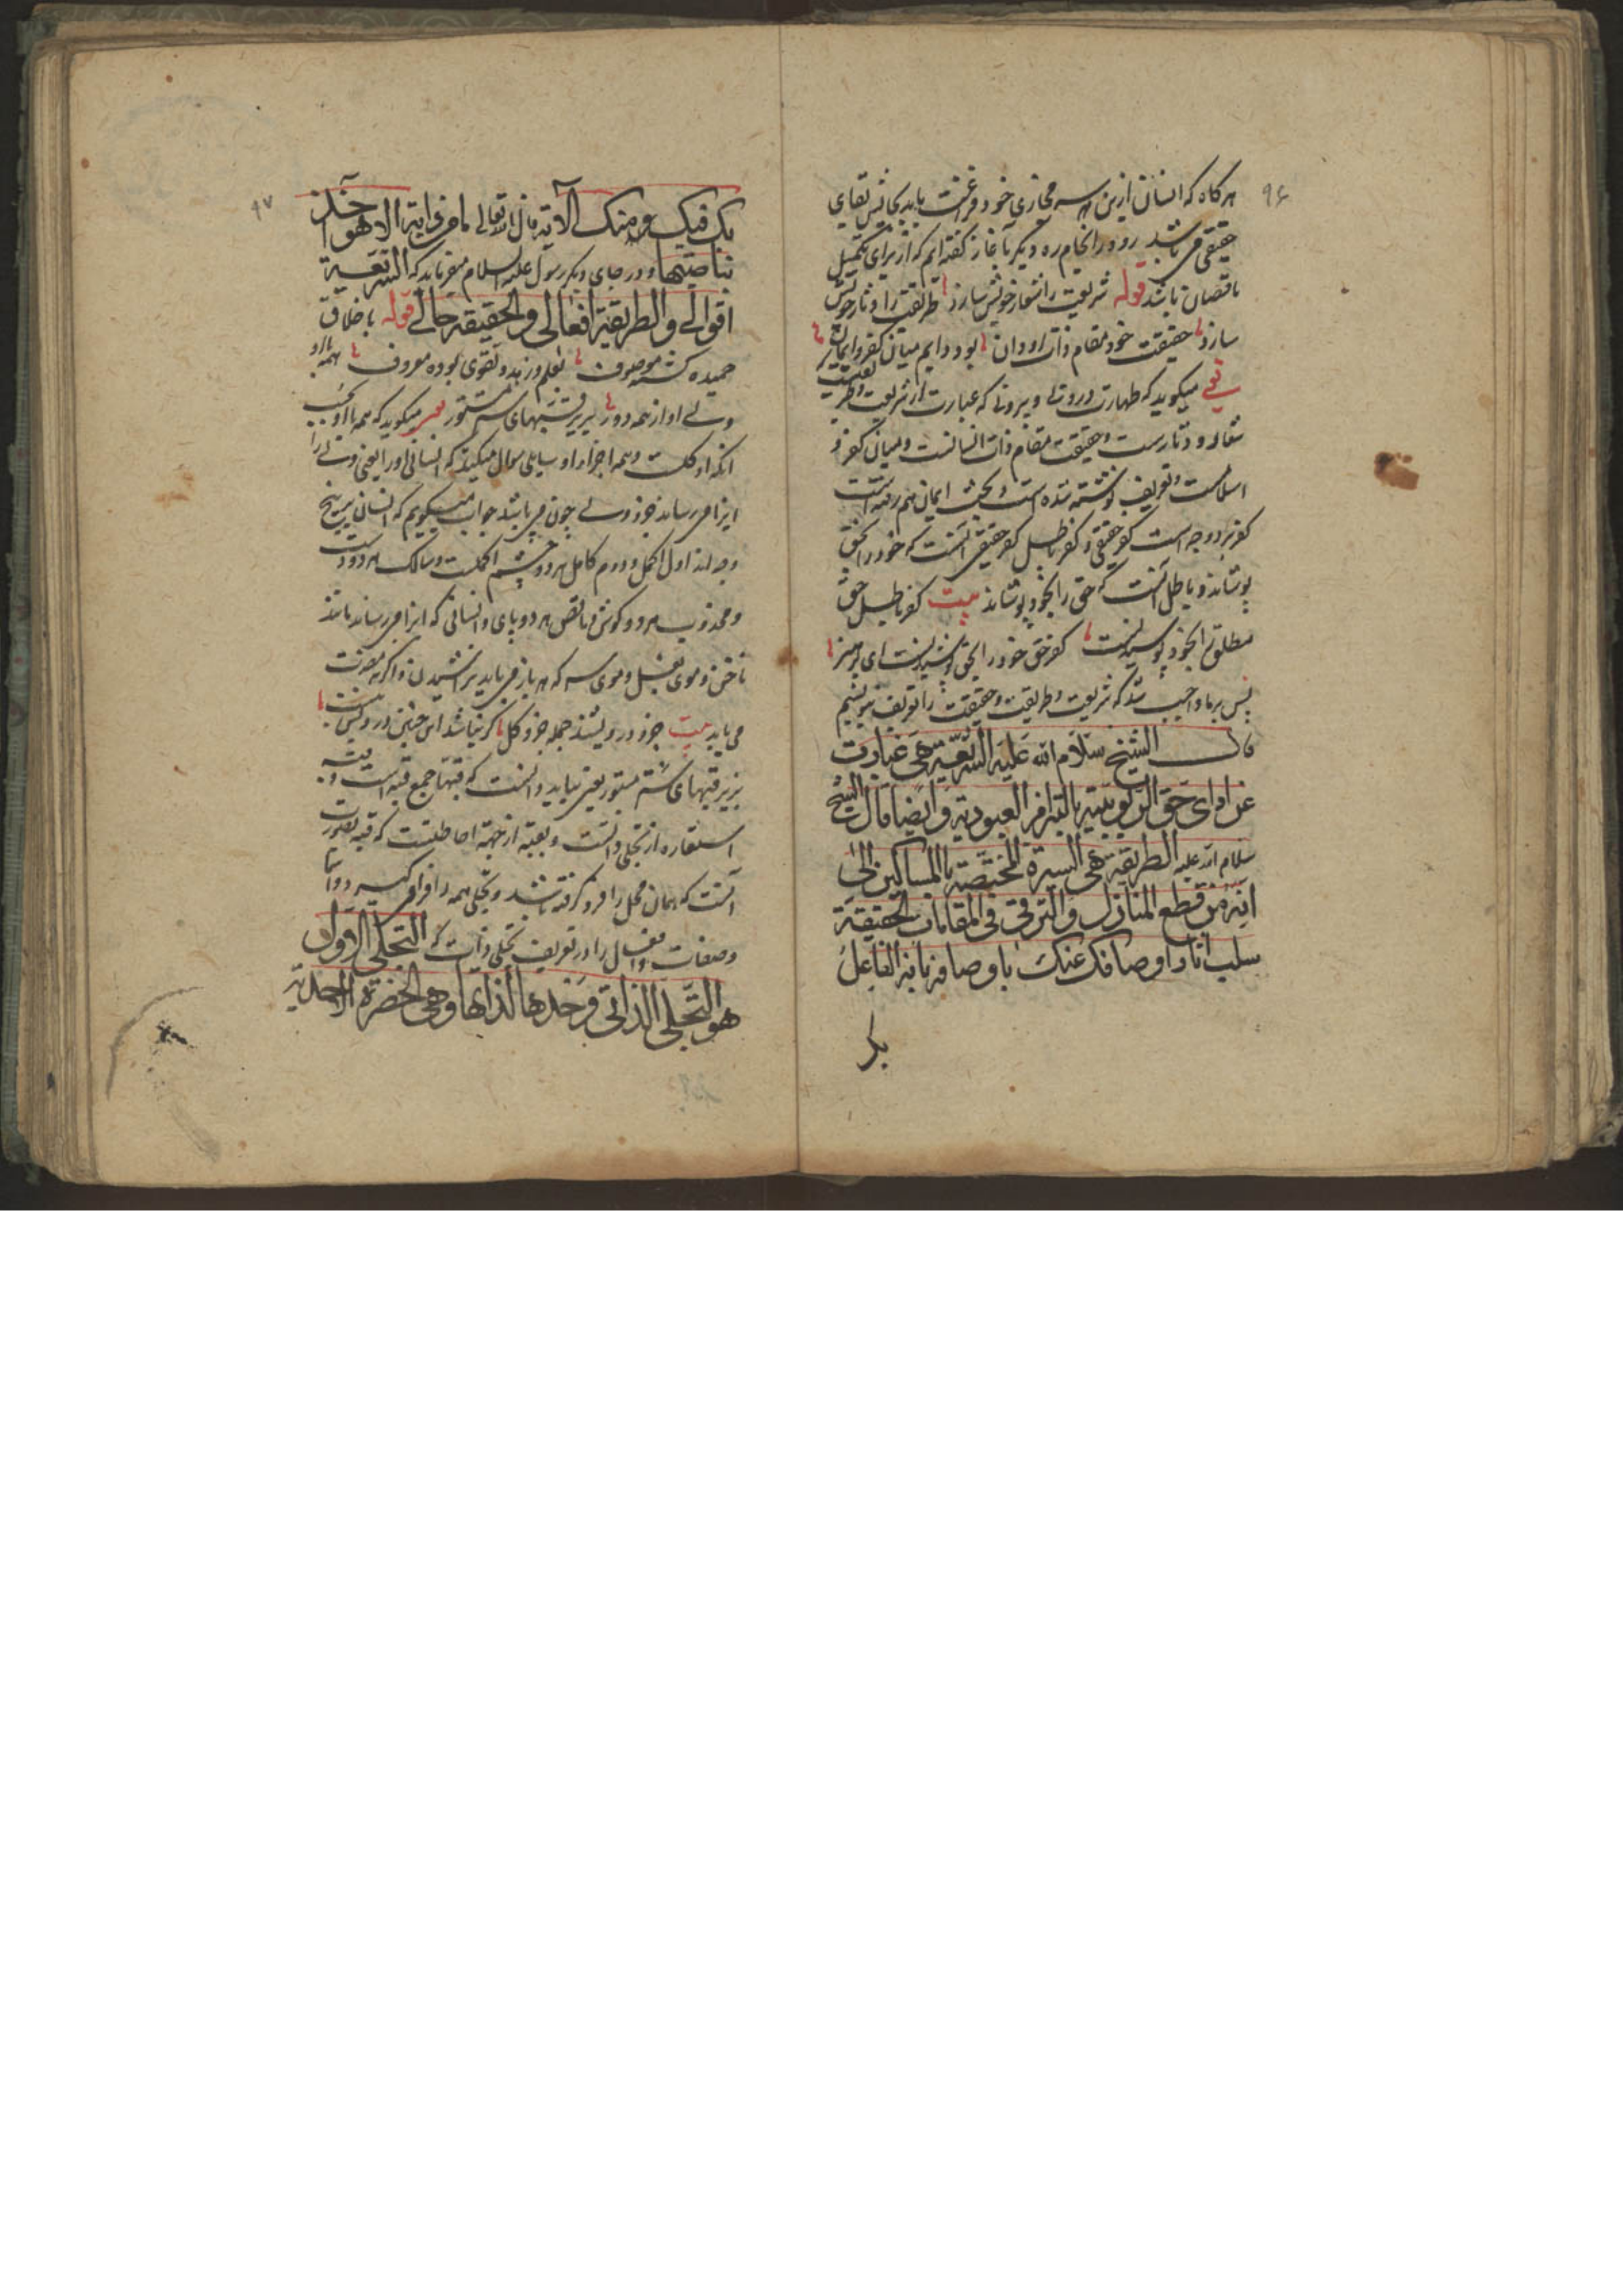 ۹۶
هرگاه که انسان ازین هر سه مجازی خود فرغت یابد بجانش بقای
حقیقی می باشد رود در انجام ره دیگر بآغاز گفته ایم که از برای تکمیل
ناقصان باشد قوله شریعت را شعار خویش سازد طریقت را دثار خویش
سازد حقیقت خود مقام ذات او دان بود دایم میان کفر و ایمان
یعنی میگوید که طهارت درونی و بیرونی که عبارت از شریعت و طریقت
شعار و دثارست و حقیقت مقام ذات انسانست و میان کفر و
اسلامست و تعریف نوشته شده است و بحث ایمان هم رفته است
کفر بر دو وجه است کفر حقیقی و کفر باطل کفر حقیقی آنست که خود را بحق
پوشاند و باطل آنست که حق را بخود پوشاند بیت کفر باطل حق
مطلق را بخود پوشیدنست کفر حق خود را بحق پوشیدنست ای پر هنر
پس بر ما واجب شد که شریعت و طریقت و حقیقت را تعریف بنویسیم
قال الشیخ سلام الله علیه الشریعة هی عبارت
عن ادای حق الربوبیة بالتزام العبودیة و ایضا قال الشیخ
سلام الله علیه الطریقة هی السیرة المختصة بالسالکین الی
الله من قطع المنازل والترقی فی المقامات الحقیقة
سلب آثار اوصافک عنک باوصافه بانه الفاعل
بک
۹۷
بک فیک و منک الآیة قال الله تعالی ما من دابة الا هو آخذ
بناصیتها و در جای دیگر رسول علیه السلام میفرماید که الشریعة
اقوالی والطریقة افعالی والحقیقة حالی قوله باخلاق
حمیده گشته موصوف بعلم و زهد و تقوی بوده معروف همه با او
ولی او از همه دور بزیر قبّهای ستر مستور یعنی میگوید که همه با او بحسب
آنکه او کلست و همه اجزاء او سایلی سوال میکند که انسانی او را یعنی ولی را
ایذا می رساند جزو ولی چون می باشد جواب میگویم که انسان بر پنج
وجه اند اول اکمل و دوم کامل هر دو چشم اکملست و سالک هر دو دست
و مجذوب هر دو گوش و ناقص هر دو پای و انسانی که ایذا می رساند مانند
ناخن و موی بغل و موی سر که هر بار می باید تراشیدن و اگر نه مضرت
می یابد بیت جزو درویشند جمله جزو کل گر نباشد این چنین درویش نیست
بزیر قبهای ستر مستور یعنی بباید دانست که قبّها جمع قبه است و
استعاره از تجلی ذاتست و بقبه از جهة احاطتست که قبه بصورت
آنست که همان محل را فرو گرفته باشد و تجلی همه را فرا می گیرد
و صفات و افعال را در تعریف تجلی ذات که التجلی الاول
هو التجلی الذاتی وحدها لذاتها و هی الحضرة الاحدیة